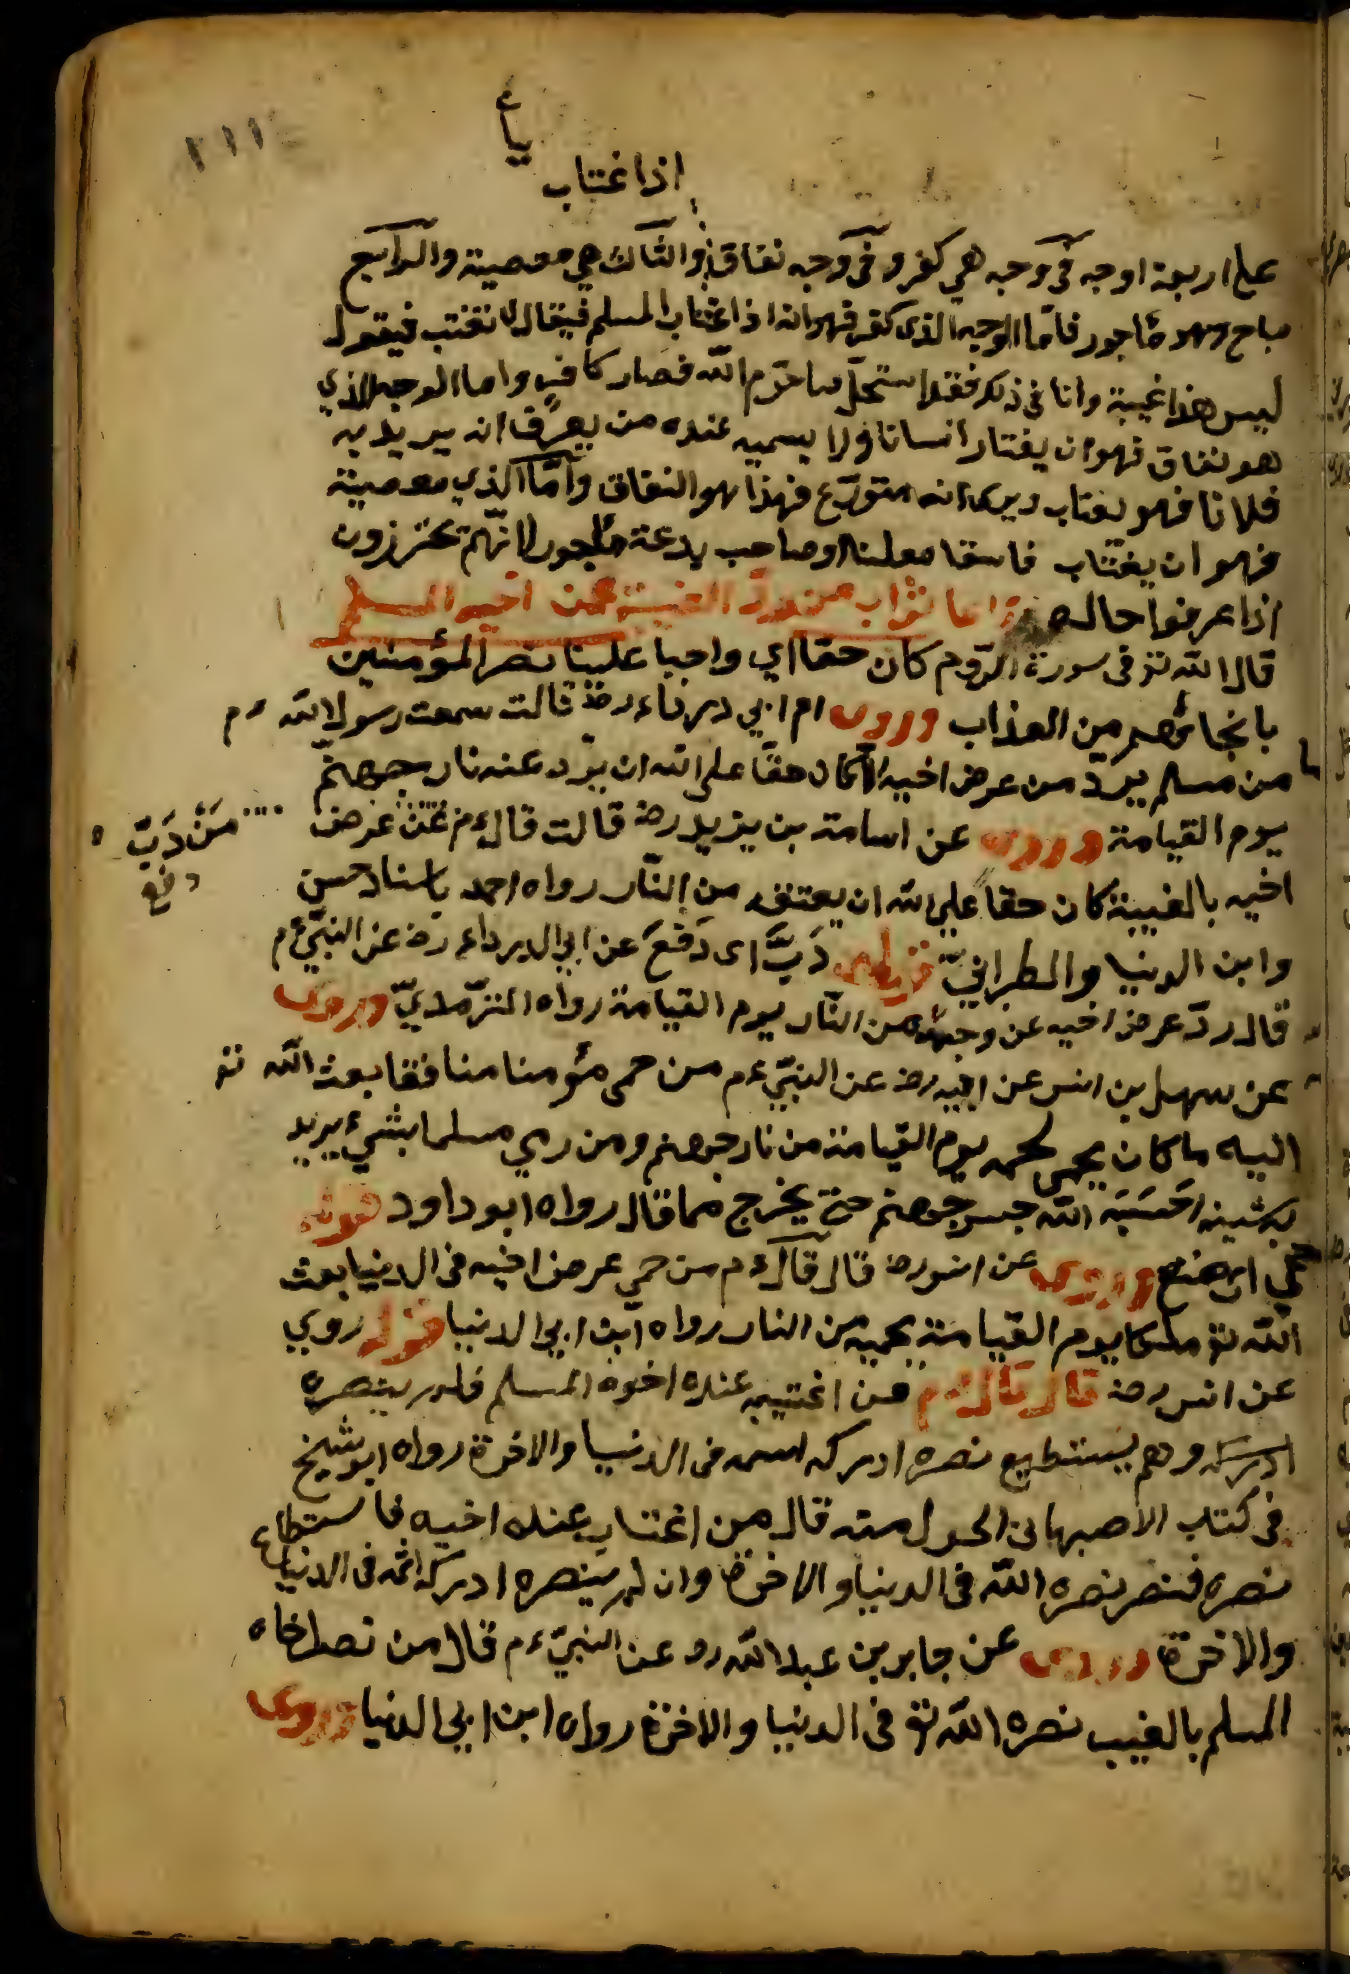 ١١١
اذا اغتاب
على اربعة اوجه في وجه هي كفر وفي وجه نفاق والثالث هي معصية والرابع
مباح وهو مأجور فاما الوجه الذي كفر فهو انه اذا اغتاب المسلم فيقال لا تغتب فيقول
ليس هذا غيبة وانا في ذلك فقد استحل ما حرم الله فصار كافر واما الوجه الذي
هو نفاق فهو ان يغتاب انسانا ولا يسميه عنده من يعرف انه يريد به
فلانا فهو يغتاب ويرى انه متورّع فهذا هو النفاق وامّا الذي معصية
فهو ان يغتاب فاسقا معلنا او صاحب بدعة مأجور لانّهم يحترزون
اذا عرفوا حاله واما ثواب من ردّ الغيبة عن اخيه المسلم
قال الله تع في سورة الرّوم كان حقا اي واجبا علينا نصر المؤمنين
بانجائهم من العذاب وروى ام ابي درداء رضـ قالت سمعت رسول الله ءم
ما من مسلم يردّ من عرض اخيه الا كان حقا على الله ان يردّ عنه نار جهنّم
يوم القيامة وروى عن اسامة بن يزيد رضـ قالت قال ءم عن عرض
مَنْ ذَبَّ
دفع
اخيه بالغيبة كان حقا على الله ان يعتقه من النّار رواه احمد باسناد حسن
وابن الدنيا والطبرانيّ قوله ذَبَّ اى دَفَعَ عن ابي الدرداء رضـ عن النبيّ ءم
قال ردّ عرض اخيه عن وجهه من النّار يوم القيامة رواه الترمذيّ وروى
عن سهل بن انس عن ابيه رضـ عن النبيّ ءم من حمى مؤمنا منافقا بعث الله تع
اليه ما كان يحمى لحمه يوم القيامة من نار جهنم ومن رمي مسلما بشيء يريد
به شينه احسَبَه الله جسر جهنم حتى يخرج مما قال رواه ابو داود قوله
حمي اى منع وروى عن انس رضـ قال قال ءم من حمي عرض اخيه في الدنيا بعث
الله تع ملكا يوم القيامة يحميه من النار رواه ابن ابي الدنيا قوله روي
عن انس رضـ قال قال ءم من اغتيب عنده اخوه المسلم فلم ينصره
ادركه وهم يستطيع نصره ادركه اسمه في الدنيا والاخرة رواه ابو شيخ
في كتاب الاصبهاني قال من اغتاب عنده اخيه فاستطاع
نصره فنصر نصره الله في الدنيا والاخرة وان لم ينصره ادركه اثمه في الدنيا
والاخرة وروى عن جابر بن عبد الله رضـ عن النبيّ ءم قال من نصر اخاه
المسلم بالغيب نصره الله تع في الدنيا والاخرة رواه ابن ابي الدنيا وروى